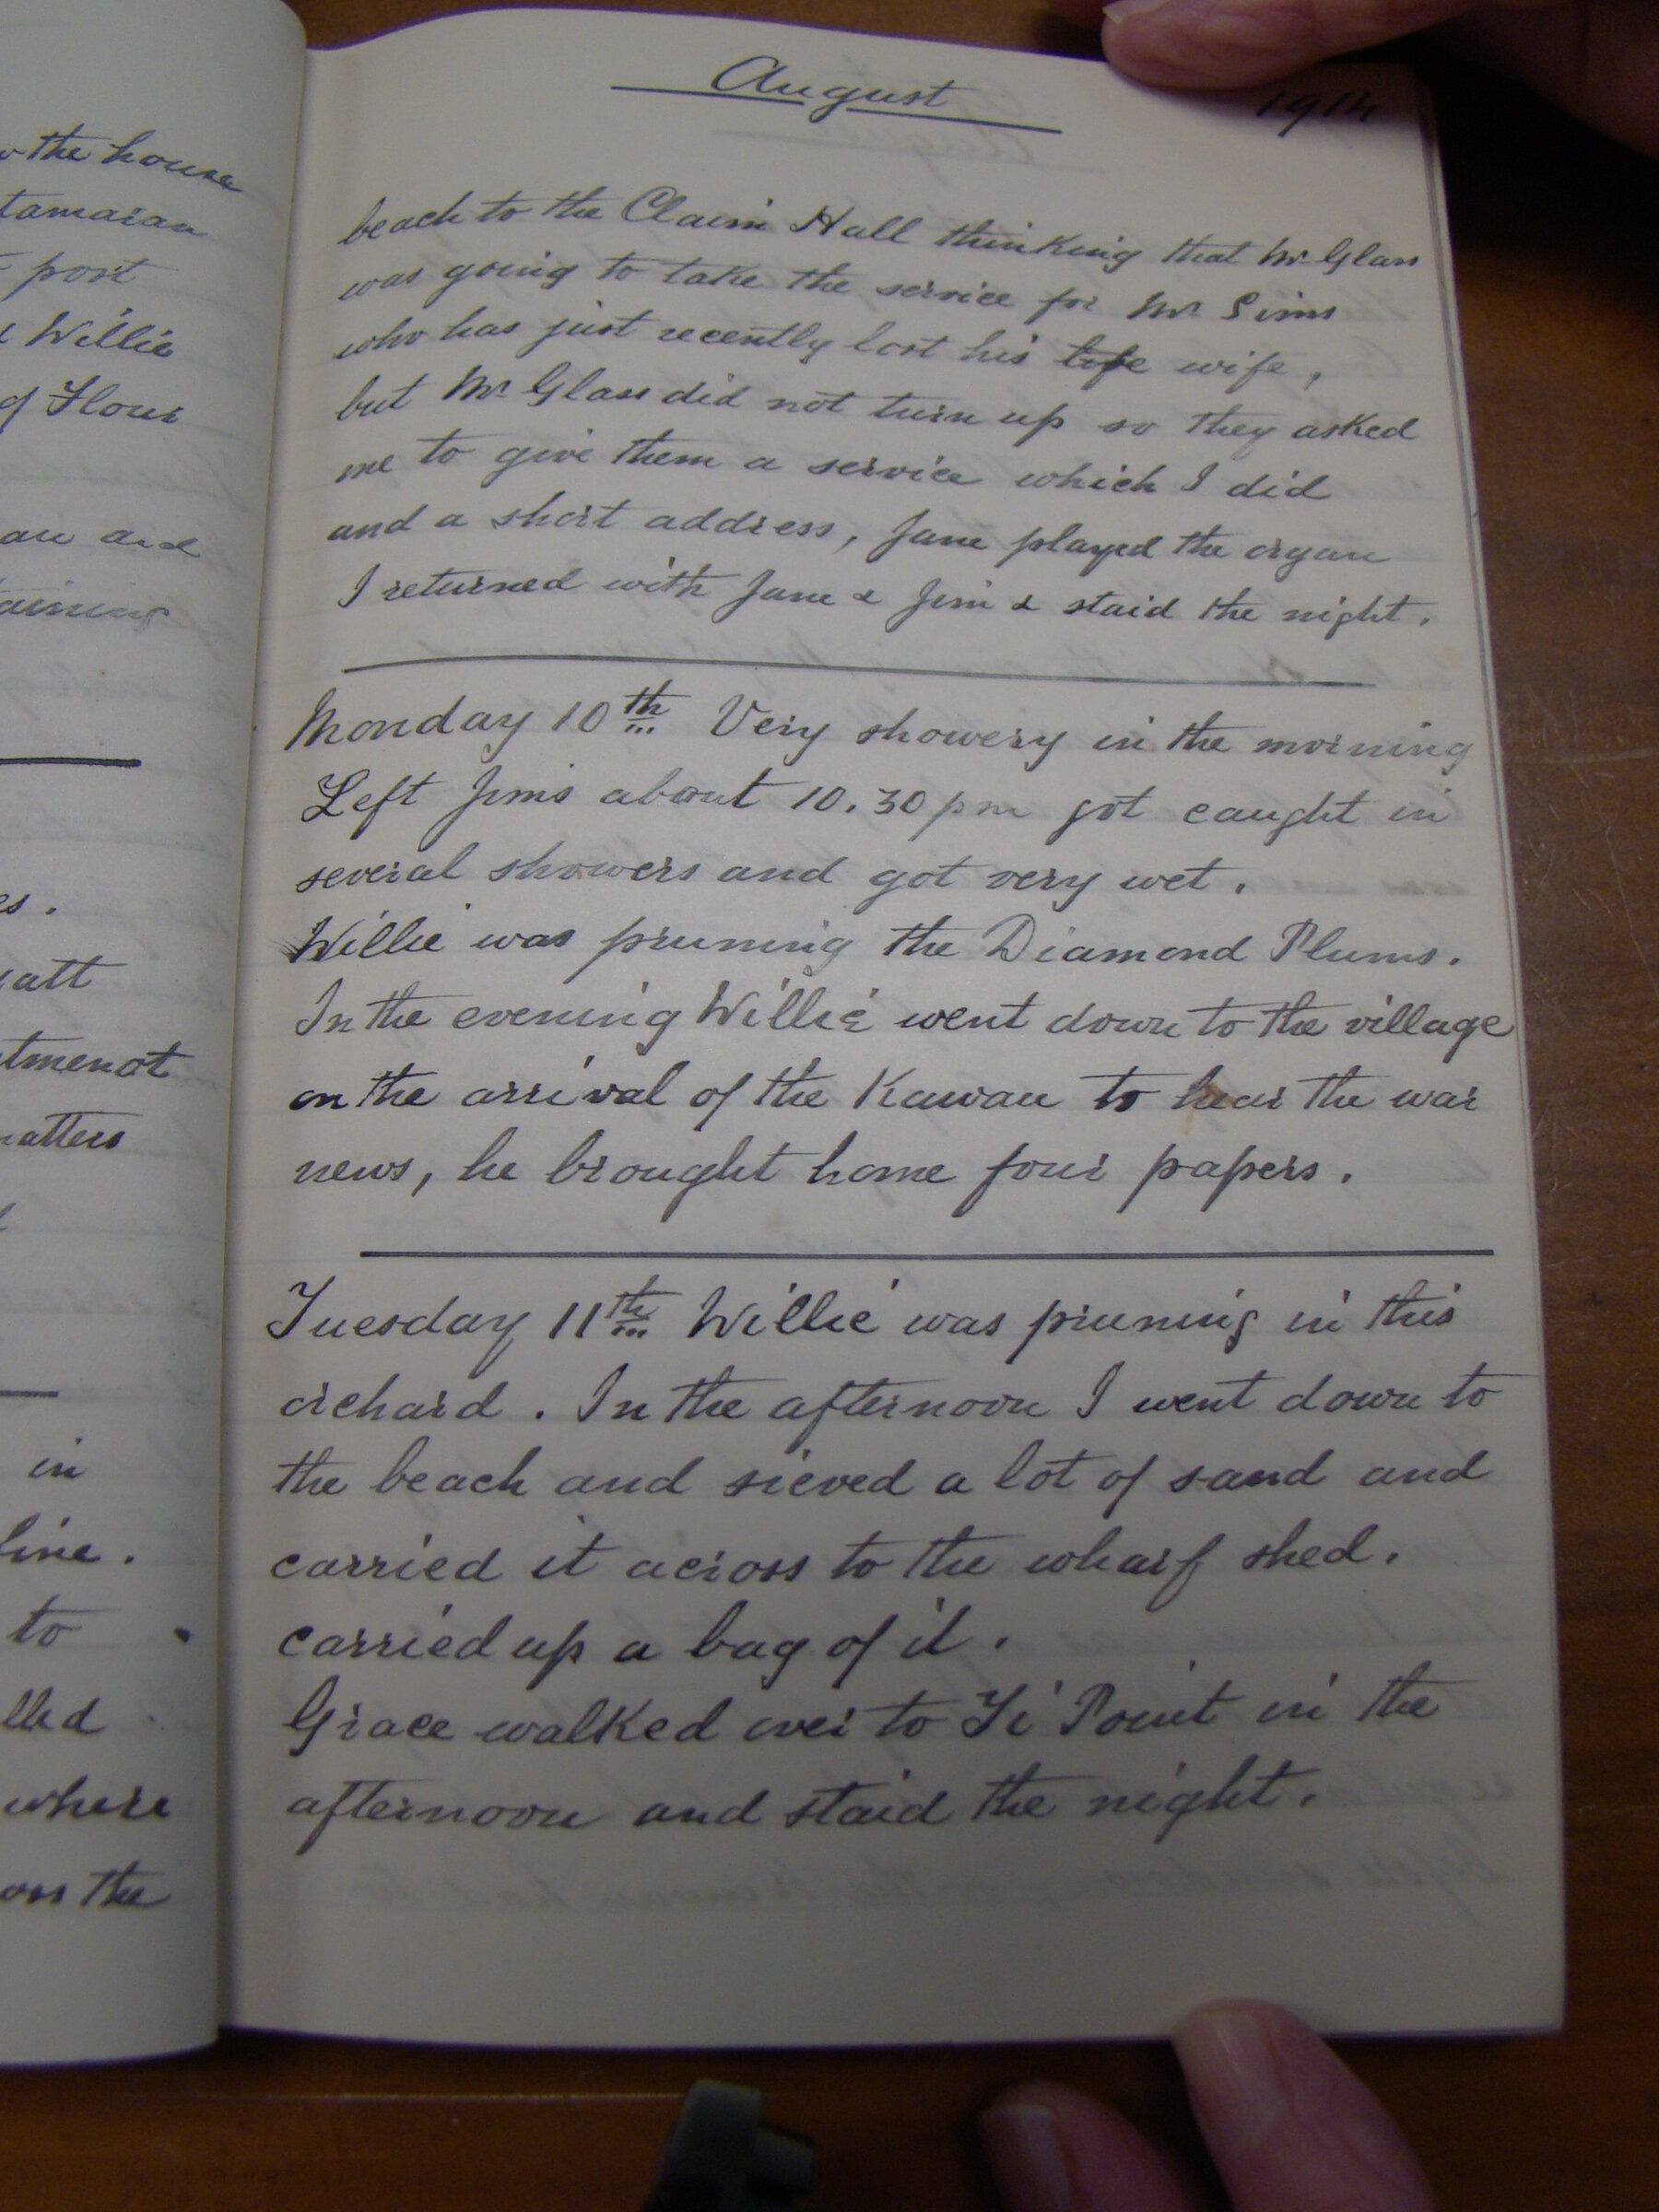 the house
tamaian
port
Willie
of Flour
and
es.
att
tmenot
matters
in
line.
to
lled
where
oss the
August
1914
beach to the Claim Hall thinking that Mr Glass
was going to take the service for Mr Sims
who has just recently lost his life wife,
but Mr Glass did not turn up so they asked
me to give them a service which I did
and a short address, Jane played the organ
I returned with Jane & Jim & staid the night.
Monday 10th Very showery in the morning
Left Jims about 10.30 pm got caught in
several showers and got very wet.
Willie was pruning the Diamond Plums.
In the evening Willie went down to the village
on the arrival of the Kawau to hear the war
news, he brought home four papers.
Tuesday 11th Willie was pruning in this
orchard. In the afternoon I went down to
the beach and sieved a lot of sand and
carried it across to the wharf shed.
carried up a bag of it.
Grace walked over to Ti Point in the
afternoon and staid the night.